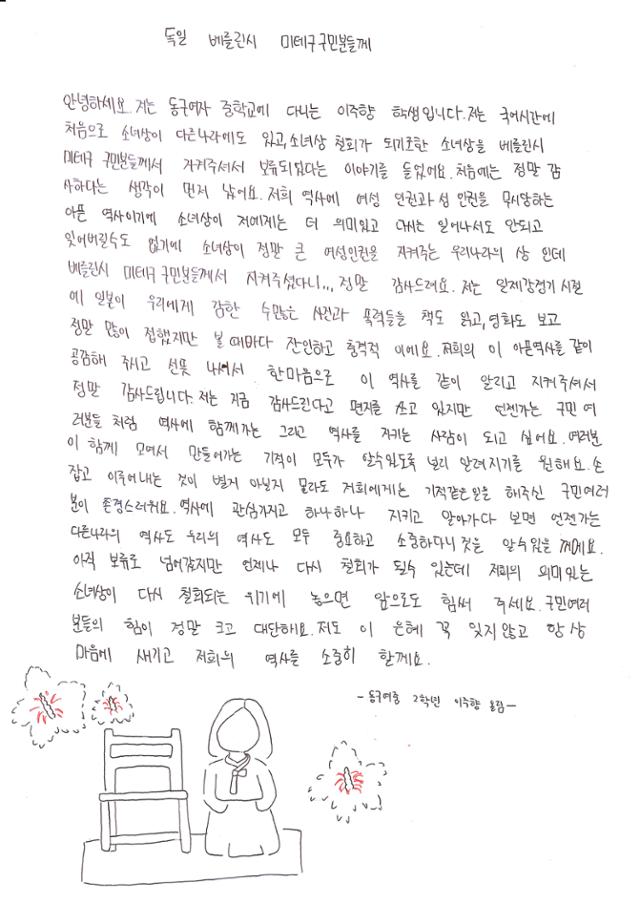 독일 베를린시 미테구 구민분들께
안녕하세요. 저는 동구여자 중학교에 다니는 이주향 학생입니다. 저는 국어시간에
처음으로 소녀상이 다른나라에도 있고, 소녀상 철회가 되기로한 소녀상을 베를린시
미테구 구민분들께서 지켜주셔서 보류되었다는 이야기를 들었어요. 처음에는 정말 감
사하다는 생각이 먼저 났어요. 저희 역사에 여성 인권과 성 인권을 무시당하는
아픈 역사이기에 소녀상이 저에게는 더 의미있고 다시는 일어나서도 안되고
잊어버릴수도 없기에 소녀상이 정말 큰 여성인권을 지켜주는 우리나라의 상 인데
베를린시 미테구 구민분들께서 지켜주셨다니... 정말 감사드려요. 저는 일제강점기 시절
에 일본이 우리에게 강한 수많은 사건과 폭력들을 책도 읽고, 영화도 보고
정말 많이 접했지만 볼 때마다 잔인하고 충격적 이에요. 저희의 이 아픈역사를 같이
공감해 주시고 선뜻 나서서 한마음으로 이 역사를 같이 알리고 지켜주셔서
정말 감사드립니다. 저는 지금 감사드린다고 편지를 쓰고 있지만 언젠가는 구민 여
러분들 처럼 역사에 함께가는 그리고 역사를 지키는 사람이 되고 싶어요. 여러분
이 함께 모여서 만들어가는 기적이 모두가 알수있도록 널리 알려지기를 원해요. 손
잡고 이루어내는 것이 별게 아닐지 몰라도 저희에게는 기적같은일을 해주신 구민여러
분이 존경스러워요. 역사에 관심가지고 하나하나 지키고 알아가다 보면 언젠가는
다른나라의 역사도 우리의 역사도 모두 중요하고 소중하다니 것을 알수있을 꺼에요.
아직 보류로 넘어갔지만 언제나 다시 철회가 될수 있는데 저희의 의미있는
소녀상이 다시 철회되는 위기에 놓으면 앞으로도 힘써 주세요. 구민여러
분들의 힘이 정말 크고 대단해요. 저도 이 은혜 꼭 잊지않고 항상
마음에 새기고 저희의 역사를 소중히 할께요.
- 동구여중 2학년 이주향 올림 -